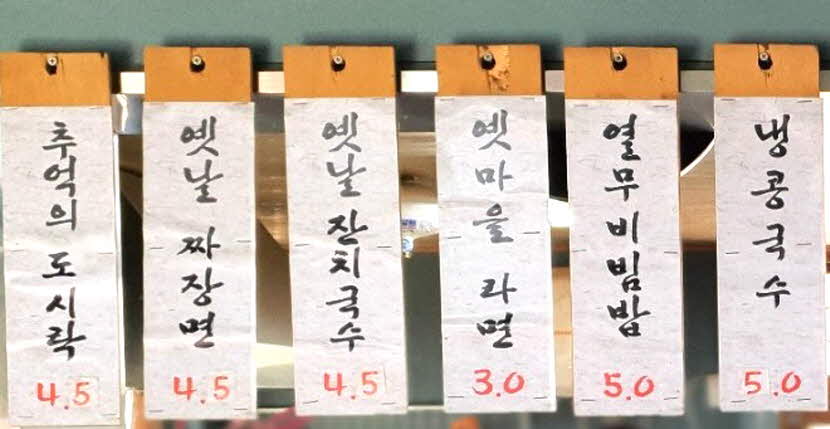 추억의 도시락
4.5
옛날 짜장면
4.5
옛날 잔치국수
4.5
옛마을 라면
3.0
열무비빔밥
5.0
냉콩국수
5.0